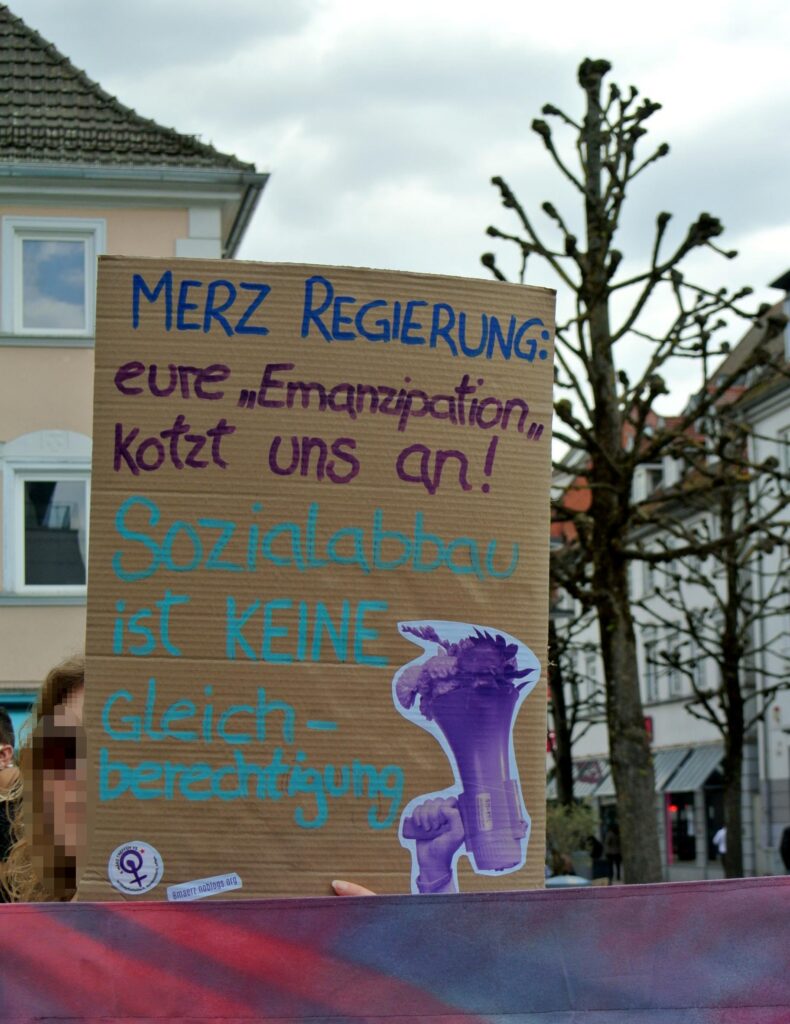 MERZ REGIERUNG:
eure „Emanzipation„
kotzt uns an!
Sozialabbau
ist KEINE
Gleich-
berechtigung